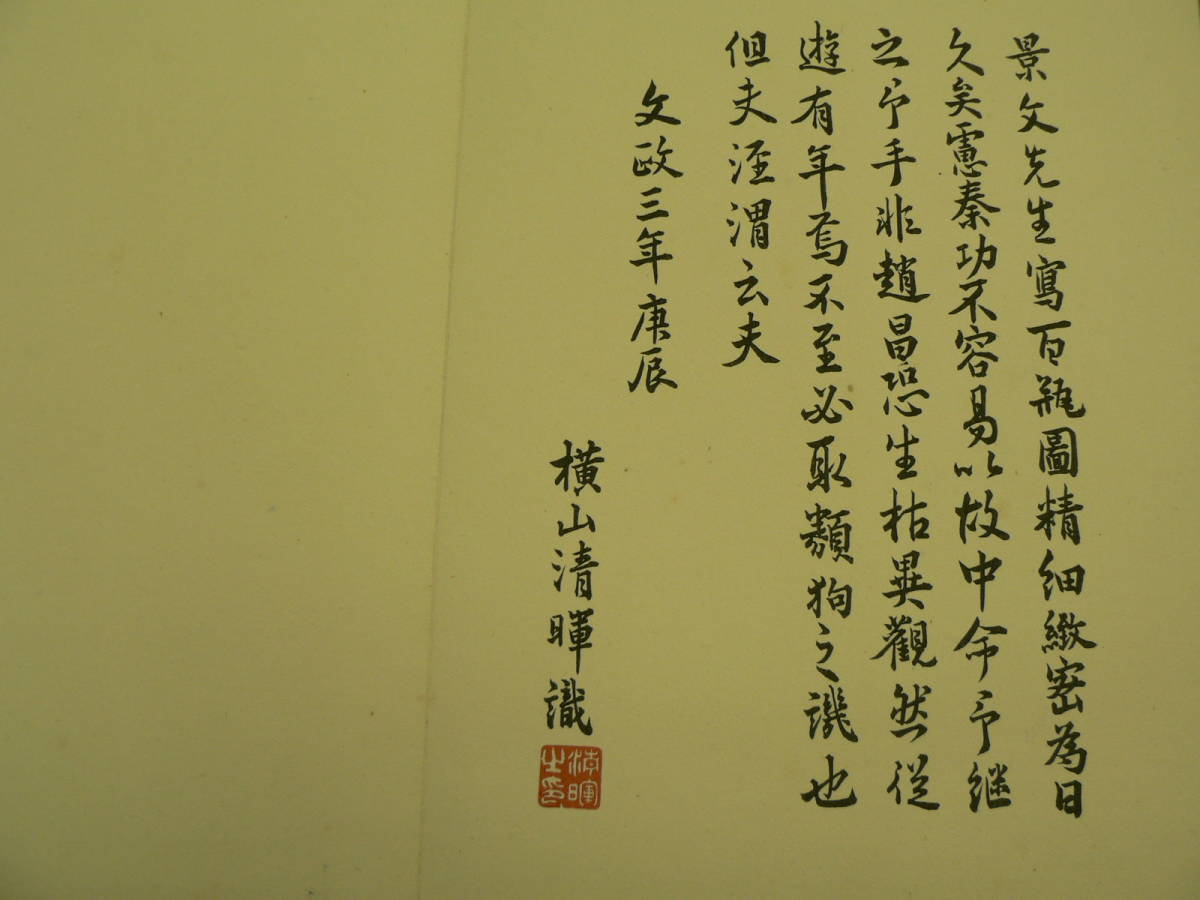 景文先生寫百瓶圖精細緻密為日
久矣寛奏功不容易以故中命予継
之予手非趙昌恐生枯異觀然從
遊有年焉不至必取類狗之譏也
但夫涇渭云夫
文政三年庚辰
橫山清暉識
清暉之印